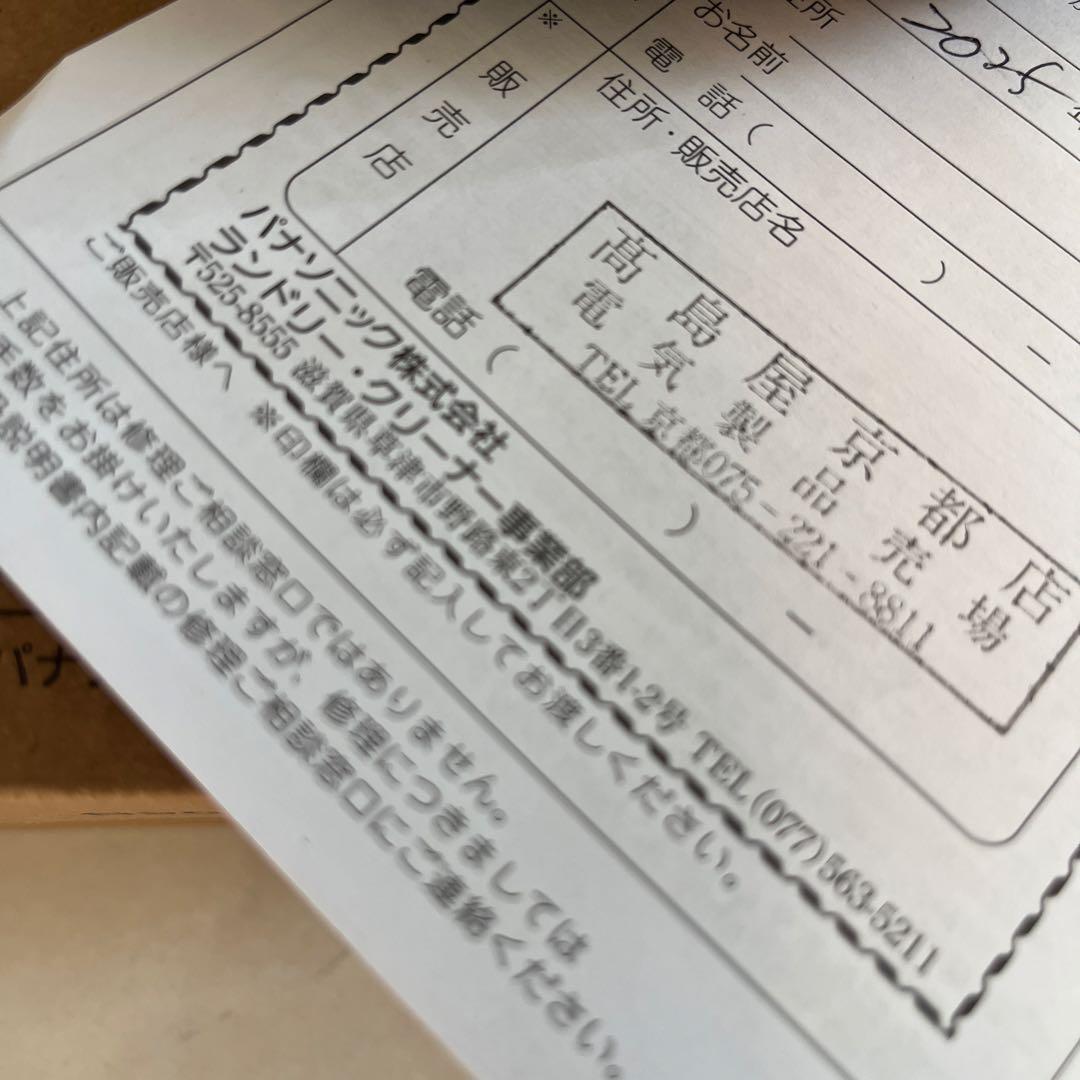 住所
2025
お名前
電話（　　　）　　－
※
販売店
住所・販売店名
髙島屋京都店
電気製品売場
TEL 京都075-221-8811
電話（　　　）　　－
パナソニック株式会社
ランドリー・クリーナー事業部
〒525-8555 滋賀県草津市野路東2丁目3番1-2号 TEL (077) 563-5211
ご販売店様へ ※印欄は必ず記入してお渡しください。
上記住所は修理ご相談窓口ではありません。
手数をお掛けいたしますが、修理につきましては
説明書内記載の修理ご相談窓口にご連絡ください。
パナ